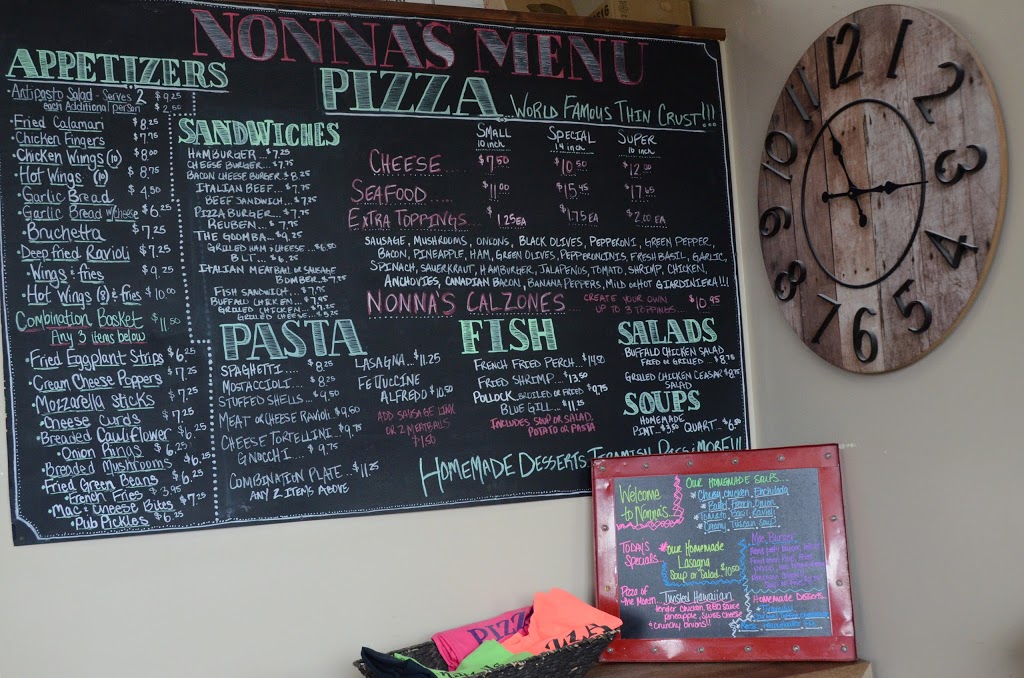 NONNA'S MENU
APPETIZERS
Antipasto Salad - Serves 2 $9.25
each Additional person $2.50
Fried Calamari $8.25
Chicken Fingers $7.75
Chicken Wings (10) $8.00
Hot Wings (10) $8.75
Garlic Bread $4.50
Garlic Bread w/cheese $6.25
Bruchetta $7.25
Deep fried Ravioli $7.25
Wings & fries $9.25
Hot Wings (8) & fries $10.00
Combination Basket $11.50
Any 3 items below
Fried Eggplant Strips $6.25
Cream Cheese Poppers $7.25
Mozzarella sticks $7.25
Cheese Curds $7.25
Breaded Cauliflower $6.25
Onion Rings $6.25
Breaded Mushrooms $6.25
Fried Green Beans $6.25
French Fries $3.95
Mac & Cheese Bites $7.25
Pub Pickles $6.25
SANDWICHES
HAMBURGER... $7.25
CHEESE BURGER... $7.75
BACON CHEESE BURGER $8.25
ITALIAN BEEF... $7.75
BEEF SANDWICH... $7.25
PIZZA BURGER... $7.75
REUBEN... $7.75
THE GOOMBA... $9.25
GRILLED HAM & CHEESE... $6.50
BLT... $6.25
ITALIAN MEATBALL OR SAUSAGE
BOMBER... $7.75
FISH SANDWICH... $7.95
BUFFALO CHICKEN... $7.95
GRILLED CHICKEN...
GRILLED CHEESE...
PIZZA WORLD FAMOUS THIN CRUST!!!
SMALL SPECIAL SUPER
10 inch 14 inch inch
CHEESE $7.50 $10.50 $12.00
SEAFOOD..... $11.00 $15.45 $17.65
EXTRA TOPPINGS... $1.25 EA $1.75 EA $2.00 EA
SAUSAGE, MUSHROOMS, ONIONS, BLACK OLIVES, PEPPERONI, GREEN PEPPER,
BACON, PINEAPPLE, HAM, GREEN OLIVES, PEPPERONCINIS, FRESH BASIL, GARLIC,
SPINACH, SAUERKRAUT, HAMBURGER, JALAPENOS, TOMATO, SHRIMP, CHICKEN,
ANCHOVIES, CANADIAN BACON, BANANA PEPPERS, MILD OR HOT GIARDINIERA!!!
NONNA'S CALZONES CREATE YOUR OWN $10.95
UP TO 3 TOPPINGS....
PASTA
SPAGHETTI.... $8.25
MOSTACCIOLI... $8.25
STUFFED SHELLS... $9.50
MEAT OR CHEESE RAVIOLI. $9.50
CHEESE TORTELLINI.. $9.75
GNOCCHI... $9.75
COMBINATION PLATE... $11.25
ANY 2 ITEMS ABOVE
LASAGNA... $11.25
FETTUCCINE
ALFREDO $10.50
ADD SAUSAGE LINK
OR 2 MEATBALLS
$1.50
FISH
FRENCH FRIED PERCH. $11.50
FRIED SHRIMP... $13.50
POLLOCK BROILED OR FRIED $9.75
BLUE GILL... $11.25
INCLUDES SOUP OR SALAD,
POTATO OR PASTA
SALADS
BUFFALO CHICKEN SALAD
FRIED OR GRILLED... $8.75
GRILLED CHICKEN CEASAR $8.75
SALAD
SOUPS
HOMEMADE
PINT.. $3.50 QUART.. $6.50
HOMEMADE DESSERTS TIRAMISU, & MORE!!!
12
1
2
3
4
5
6
7
8
9
10
11
Welcome
to Nonna's..
OUR HOMEMADE SOUPS...
Cheesy Chicken Enchilada
Baked French Onion
Tomato Beef Ravioli
Creamy Tuscan Soup
TODAY'S
Specials...
our Homemade
Lasagna
Soup or Salad.. $10.50
Pizza of
the Month
Twisted Hawaiian
tender Chicken, BBQ Sauce
pineapple, Swiss Cheese
& Crunchy Onions!!
Burger
Homemade Desserts
Tiramisu
PIZZA